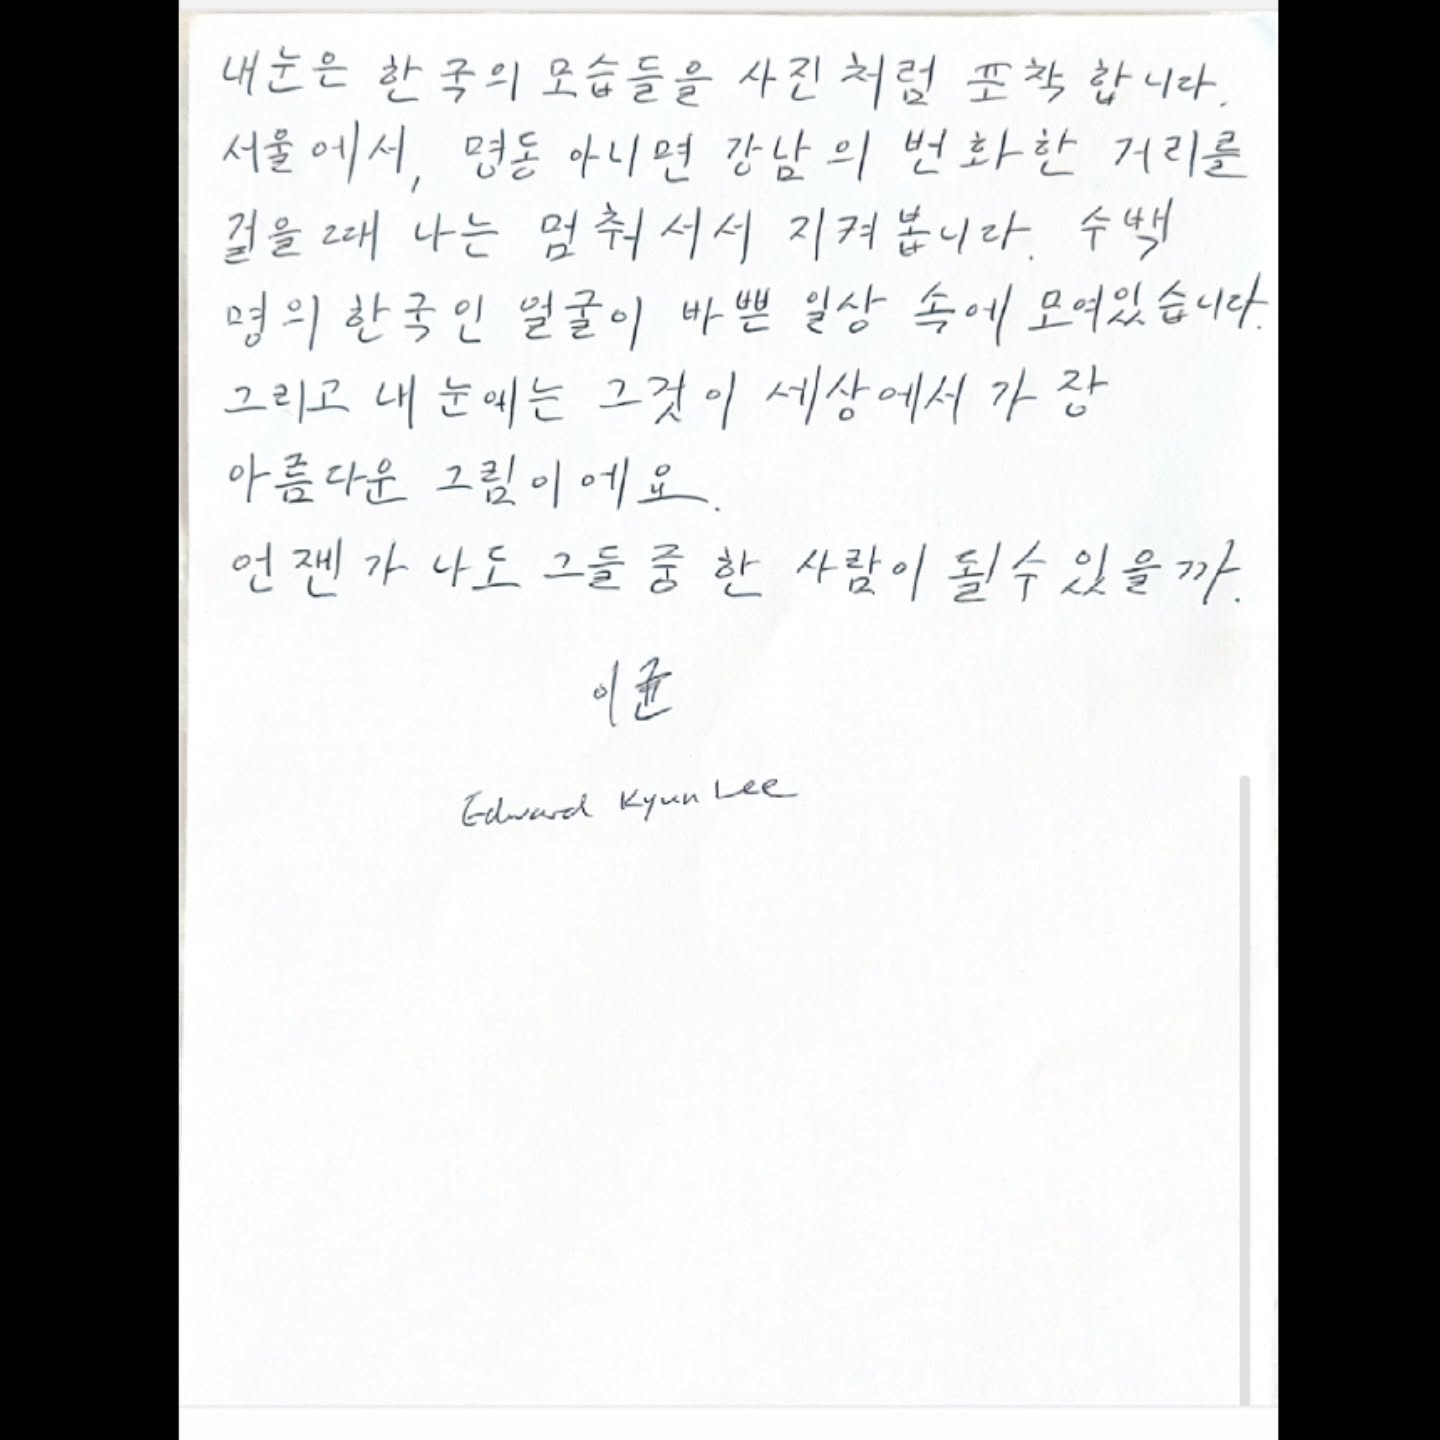 내눈은 한국의 모습들을 사진처럼 포착합니다.
서울에서, 명동 아니면 강남의 번화한 거리를
걸을 때 나는 멈춰 서서 지켜봅니다. 수백
명의 한국인 얼굴이 바쁜 일상 속에 모여있습니다.
그리고 내 눈에는 그것이 세상에서 가장
아름다운 그림이에요.
언젠가 나도 그들 중 한 사람이 될수 있을까.
이균
Edward Kyun Lee